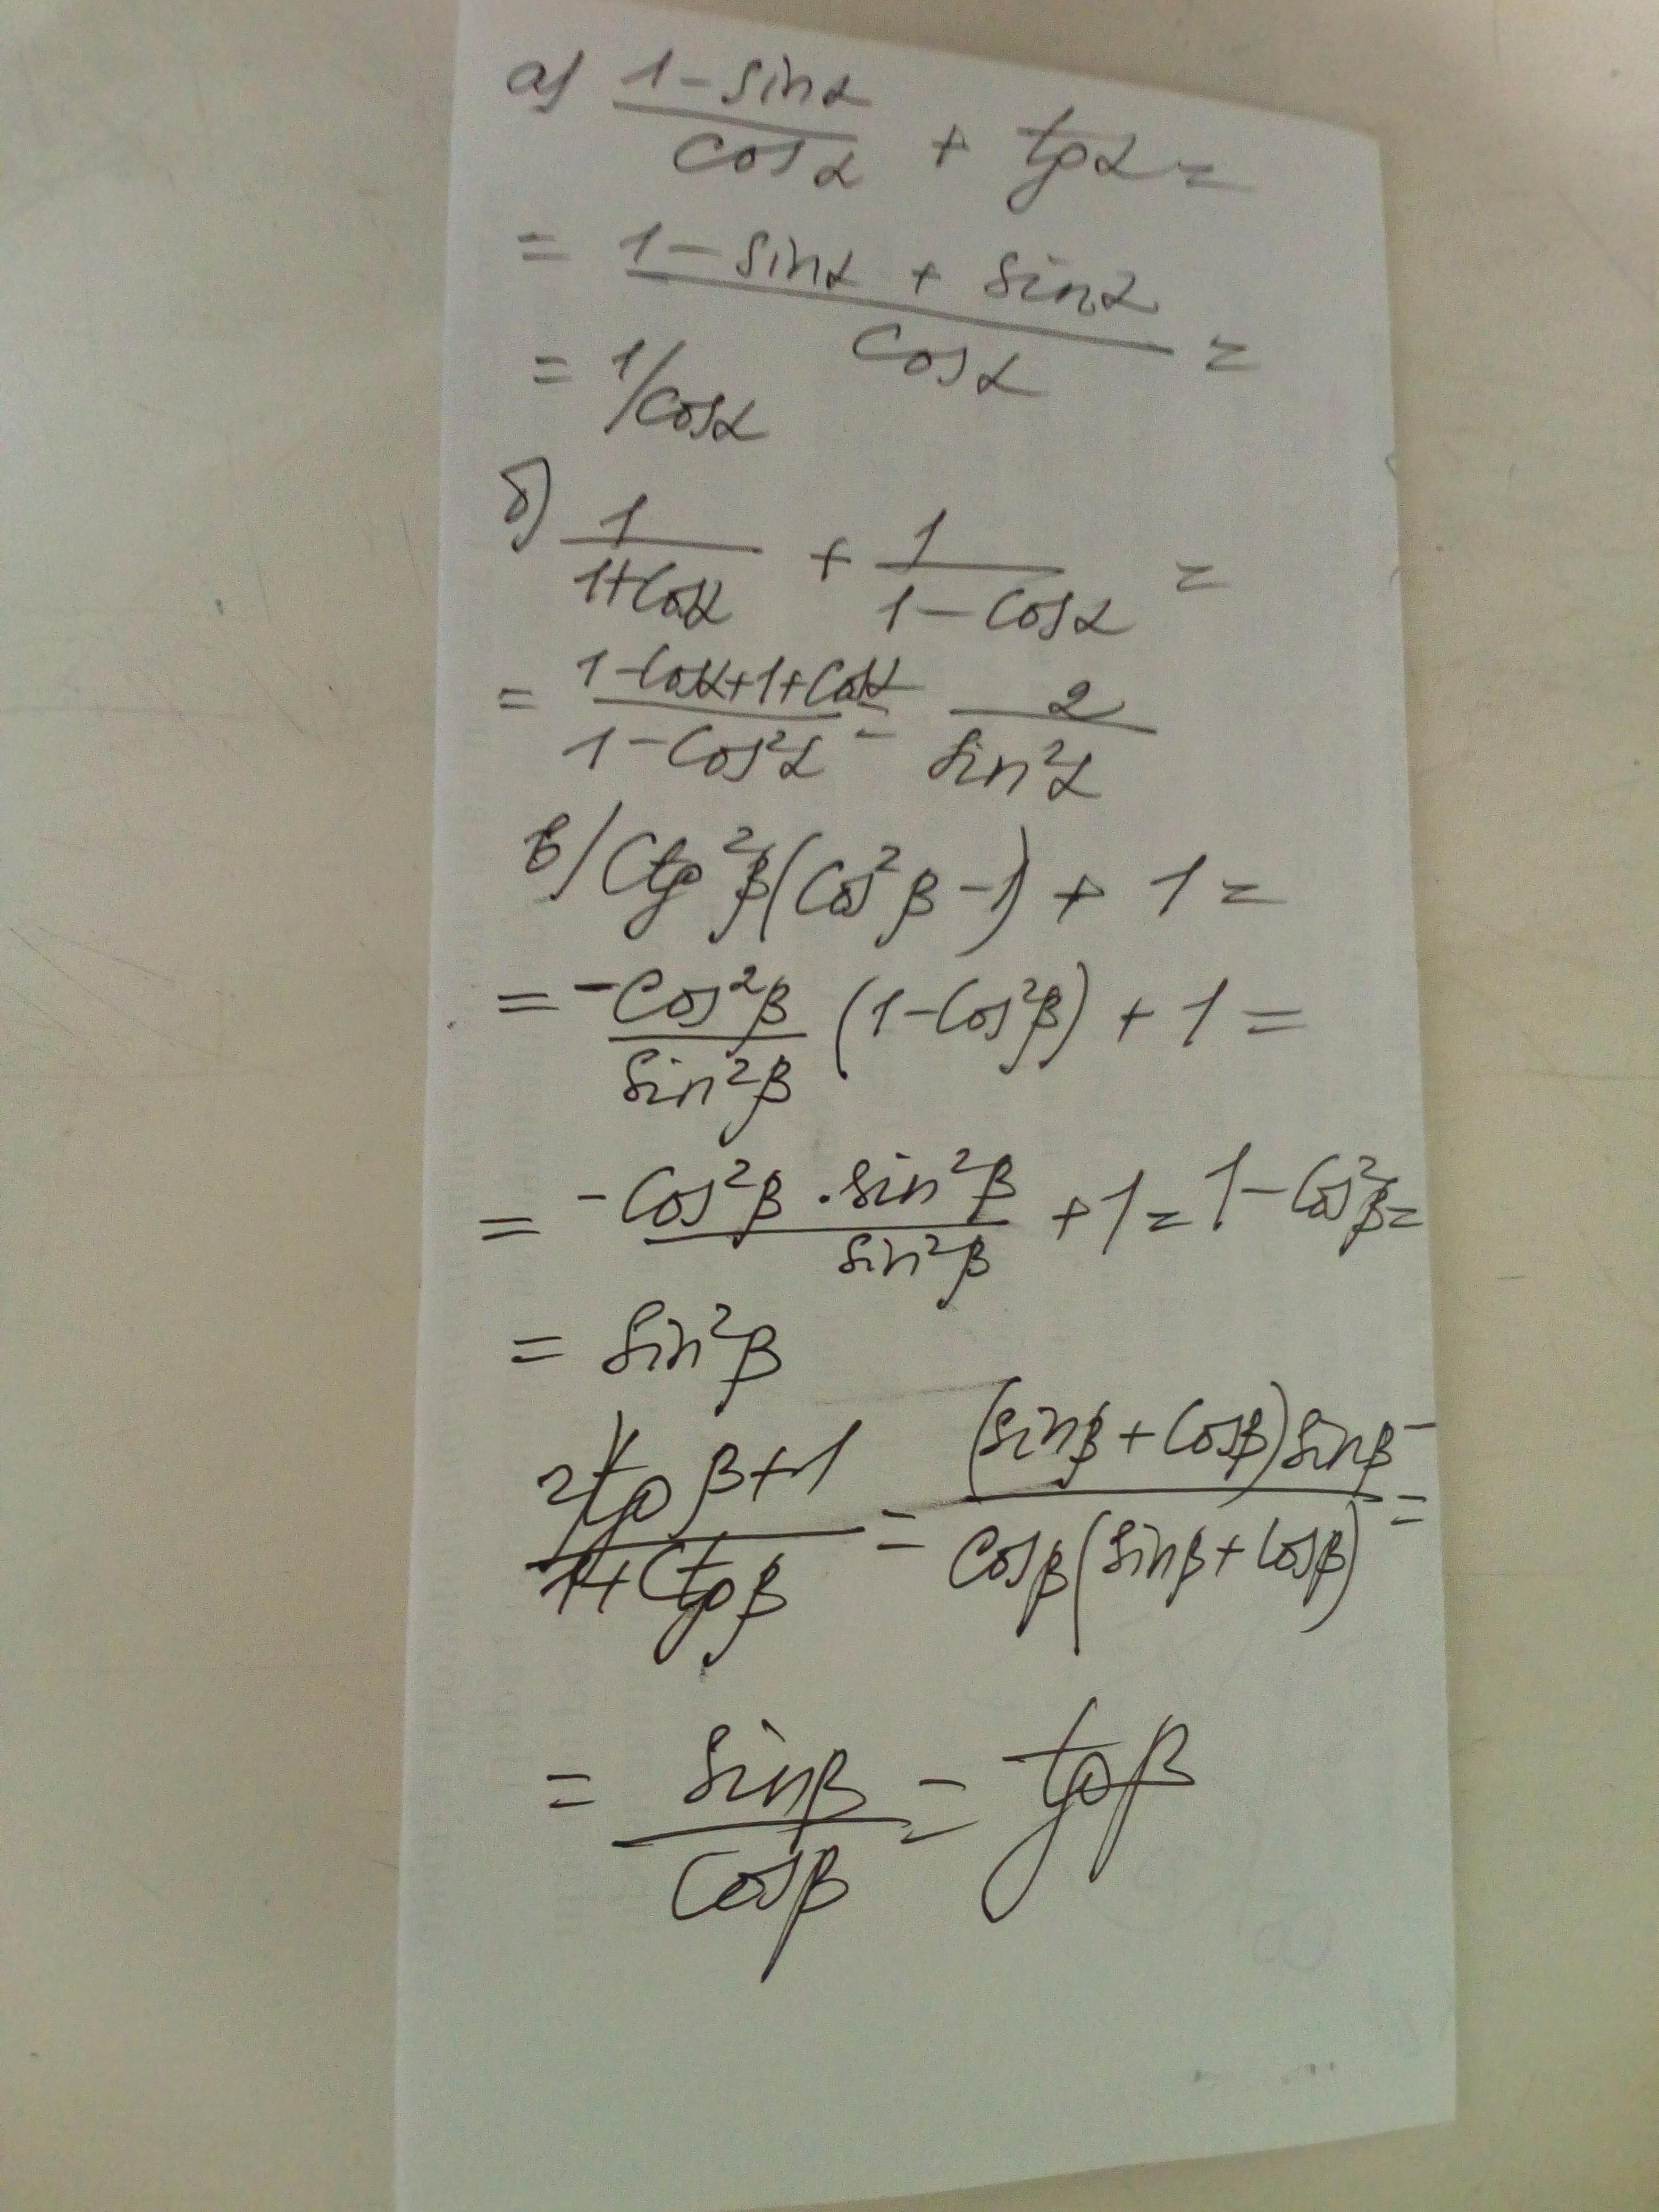 а) (1-sinα)/cosα + tgα =
= (1-sinα + sinα)/cosα =
= 1/cosα
б) 1/(1+cosα) + 1/(1-cosα) =
= (1-cosα+1+cosα)/(1-cos²α) = 2/sin²α
в) ctg²β(cos²β-1) + 1 =
= -cos²β/sin²β (1-cos²β) + 1 =
= -cos²β·sin²β/sin²β + 1 = 1-cos²β =
= sin²β
г) (tgβ+1)/(1+ctgβ) = (sinβ+cosβ)sinβ/(cosβ(sinβ+cosβ)) =
= sinβ/cosβ = tgβ